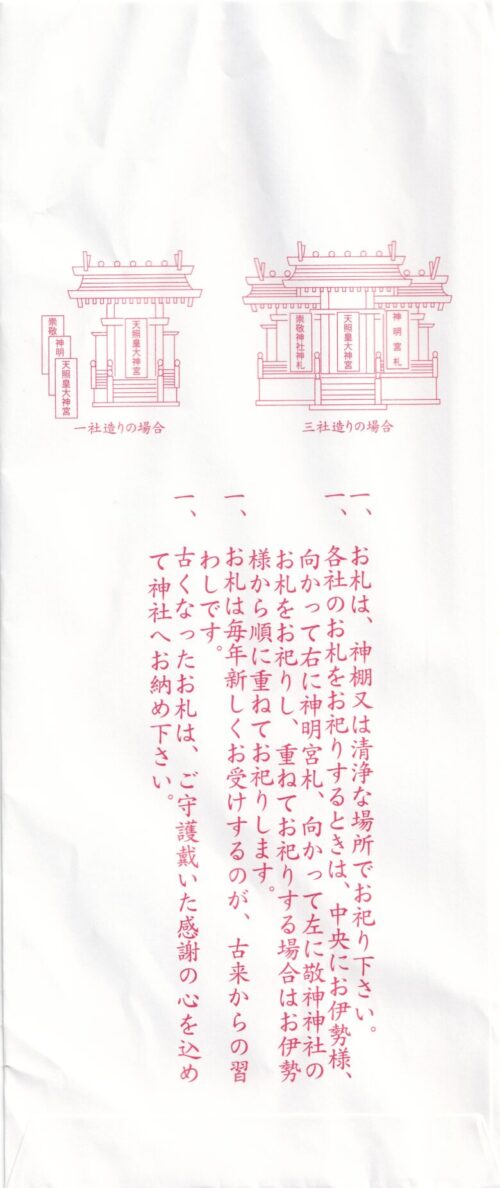 崇敬
神明
天照皇大神宮
天照皇大神宮
一社造りの場合
崇敬神社神札
天照皇大神宮
神明宮札
三社造りの場合
一、お札は、神棚又は清浄な場所でお祀り下さい。
一、各社のお札をお祀りするときは、中央にお伊勢様、
向かって右に神明宮札、向かって左に敬神神社の
お札をお祀りし、重ねてお祀りする場合はお伊勢
様から順に重ねてお祀りします。
一、お札は毎年新しくお受けするのが、古来からの習
わしです。
一、古くなったお札は、ご守護戴いた感謝の心を込め
て神社へお納め下さい。